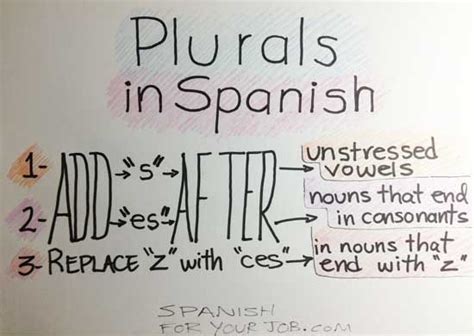 Plurals
in Spanish
1- ADD → "s" → AFTER → unstressed vowels
2- ADD → "es" → AFTER → nouns that end in consonants
3- REPLACE "Z" with "ces" → in nouns that end with "z"
SPANISH
FOR YOUR JOB.COM